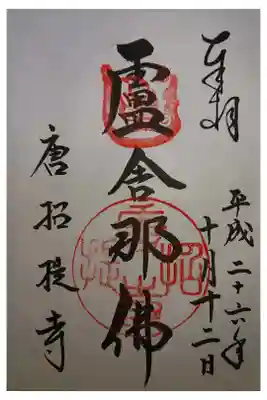 奉拝
平成二十六年
十月十二日
盧舎那佛
唐招提寺